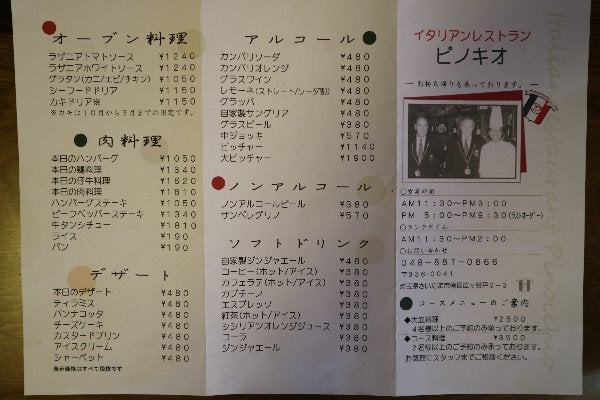 オーブン料理
ラザニアトマトソース ¥1240
ラザニアホワイトソース ¥1240
グラタン(カニ/エビ/チキン) ¥1050
シーフードドリア ¥1150
カキドリア※ ¥1150
※カキは10月から3月までの限定です。
肉料理
本日のハンバーグ ¥1050
本日の鶏料理 ¥1340
本日の仔牛料理 ¥1620
本日の肉料理 ¥1810
ハンバーグステーキ ¥1050
ビーフペッパーステーキ ¥1340
牛タンシチュー ¥1810
ライス ¥190
パン ¥190
デザート
本日のデザート ¥480
ティラミス ¥480
パンナコッタ ¥480
チーズケーキ ¥480
カスタードプリン ¥480
アイスクリーム ¥480
シャーベット ¥480
表示価格はすべて税抜です
アルコール
カンパリソーダ ¥480
カンパリオレンジ ¥480
グラスワイン ¥480
レモーネ(ストレート/ソーダ割) ¥480
グラッパ ¥480
自家製サングリア ¥480
グラスビール ¥380
中ジョッキ ¥570
ピッチャー ¥1140
大ピッチャー ¥1900
ノンアルコール
ノンアルコールビール ¥380
サンペレグリノ ¥570
ソフトドリンク
自家製ジンジャエール ¥480
コーヒー(ホット/アイス) ¥380
カフェラテ(ホット/アイス) ¥380
カプチーノ ¥380
エスプレッソ ¥380
紅茶(ホット/アイス) ¥380
シシリアンオレンジジュース ¥380
コーラ ¥380
ジンジャエール ¥380
イタリアンレストラン
ピノキオ
― お持ち帰りも承っております。―
○営業時間
AM11:30~PM3:00
PM 5:00~PM9:30(ラストオーダー)
○ランチタイム
AM11:30~PM2:00
○お問い合わせ
048-887-0866
〒336-0041
埼玉県さいたま市南区広ヶ谷戸
コースメニューのご案内
◆大皿料理 ¥2500
4名様以上のご予約のみ承っております。
◆コース料理 ¥3500
2名様以上のご予約のみ承っております。
お気軽にスタッフまでご相談ください。
Italian Restaurant Pinocchio